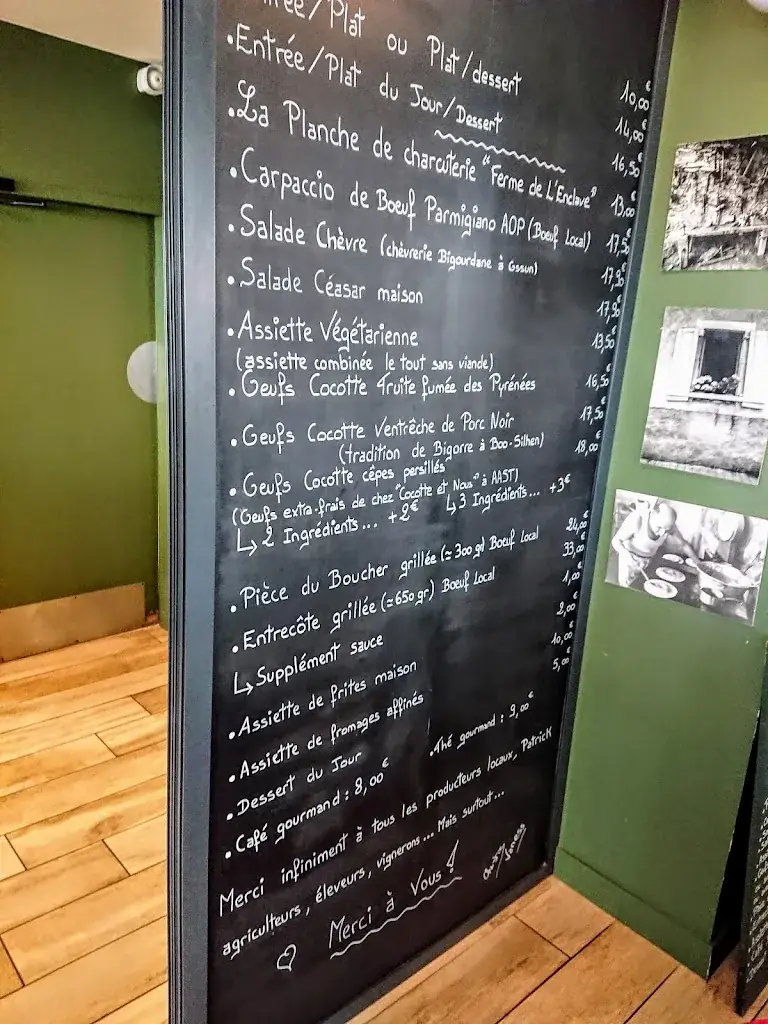 trée/Plat ou Plat/dessert 14,00€
• Entrée/Plat du Jour/Dessert 16,50€
• La Planche de charcuterie "Ferme de L'Enclave" 13,00€
• Carpaccio de Boeuf Parmigiano AOP (Boeuf Local) 17,50€
• Salade Chèvre (chèvrerie Bigourdane à Ossun) 17,90€
• Salade Céasar maison 17,90€
• Assiette Végétarienne 13,50€
(assiette combinée le tout sans viande)
• Oeufs Cocotte Truite fumée des Pyrénées 16,50€
• Oeufs Cocotte Ventrêche de Porc Noir 17,50€
(tradition de Bigorre à Boo-Silhen)
• Oeufs Cocotte cêpes persillés 18,00€
(Oeufs extra-frais de chez "Cocotte et Nous" à AAST)
↳ 2 Ingrédients... +2€ ↳ 3 Ingrédients... +3€
• Pièce du Boucher grillée (≃300gr) Boeuf Local 24,00€
• Entrecôte grillée (≃650gr) Boeuf Local 33,00€
↳ Supplément sauce 1,00€
• Assiette de frites maison 2,00€
• Assiette de fromages affinés 10,00€
• Dessert du Jour 5,00€
• Café gourmand : 8,00€ • Thé gourmand : 9,00€
Merci infiniment à tous les producteurs locaux, Patrick
agriculteurs, éleveurs, vignerons... Mais surtout...
Merci à Vous !